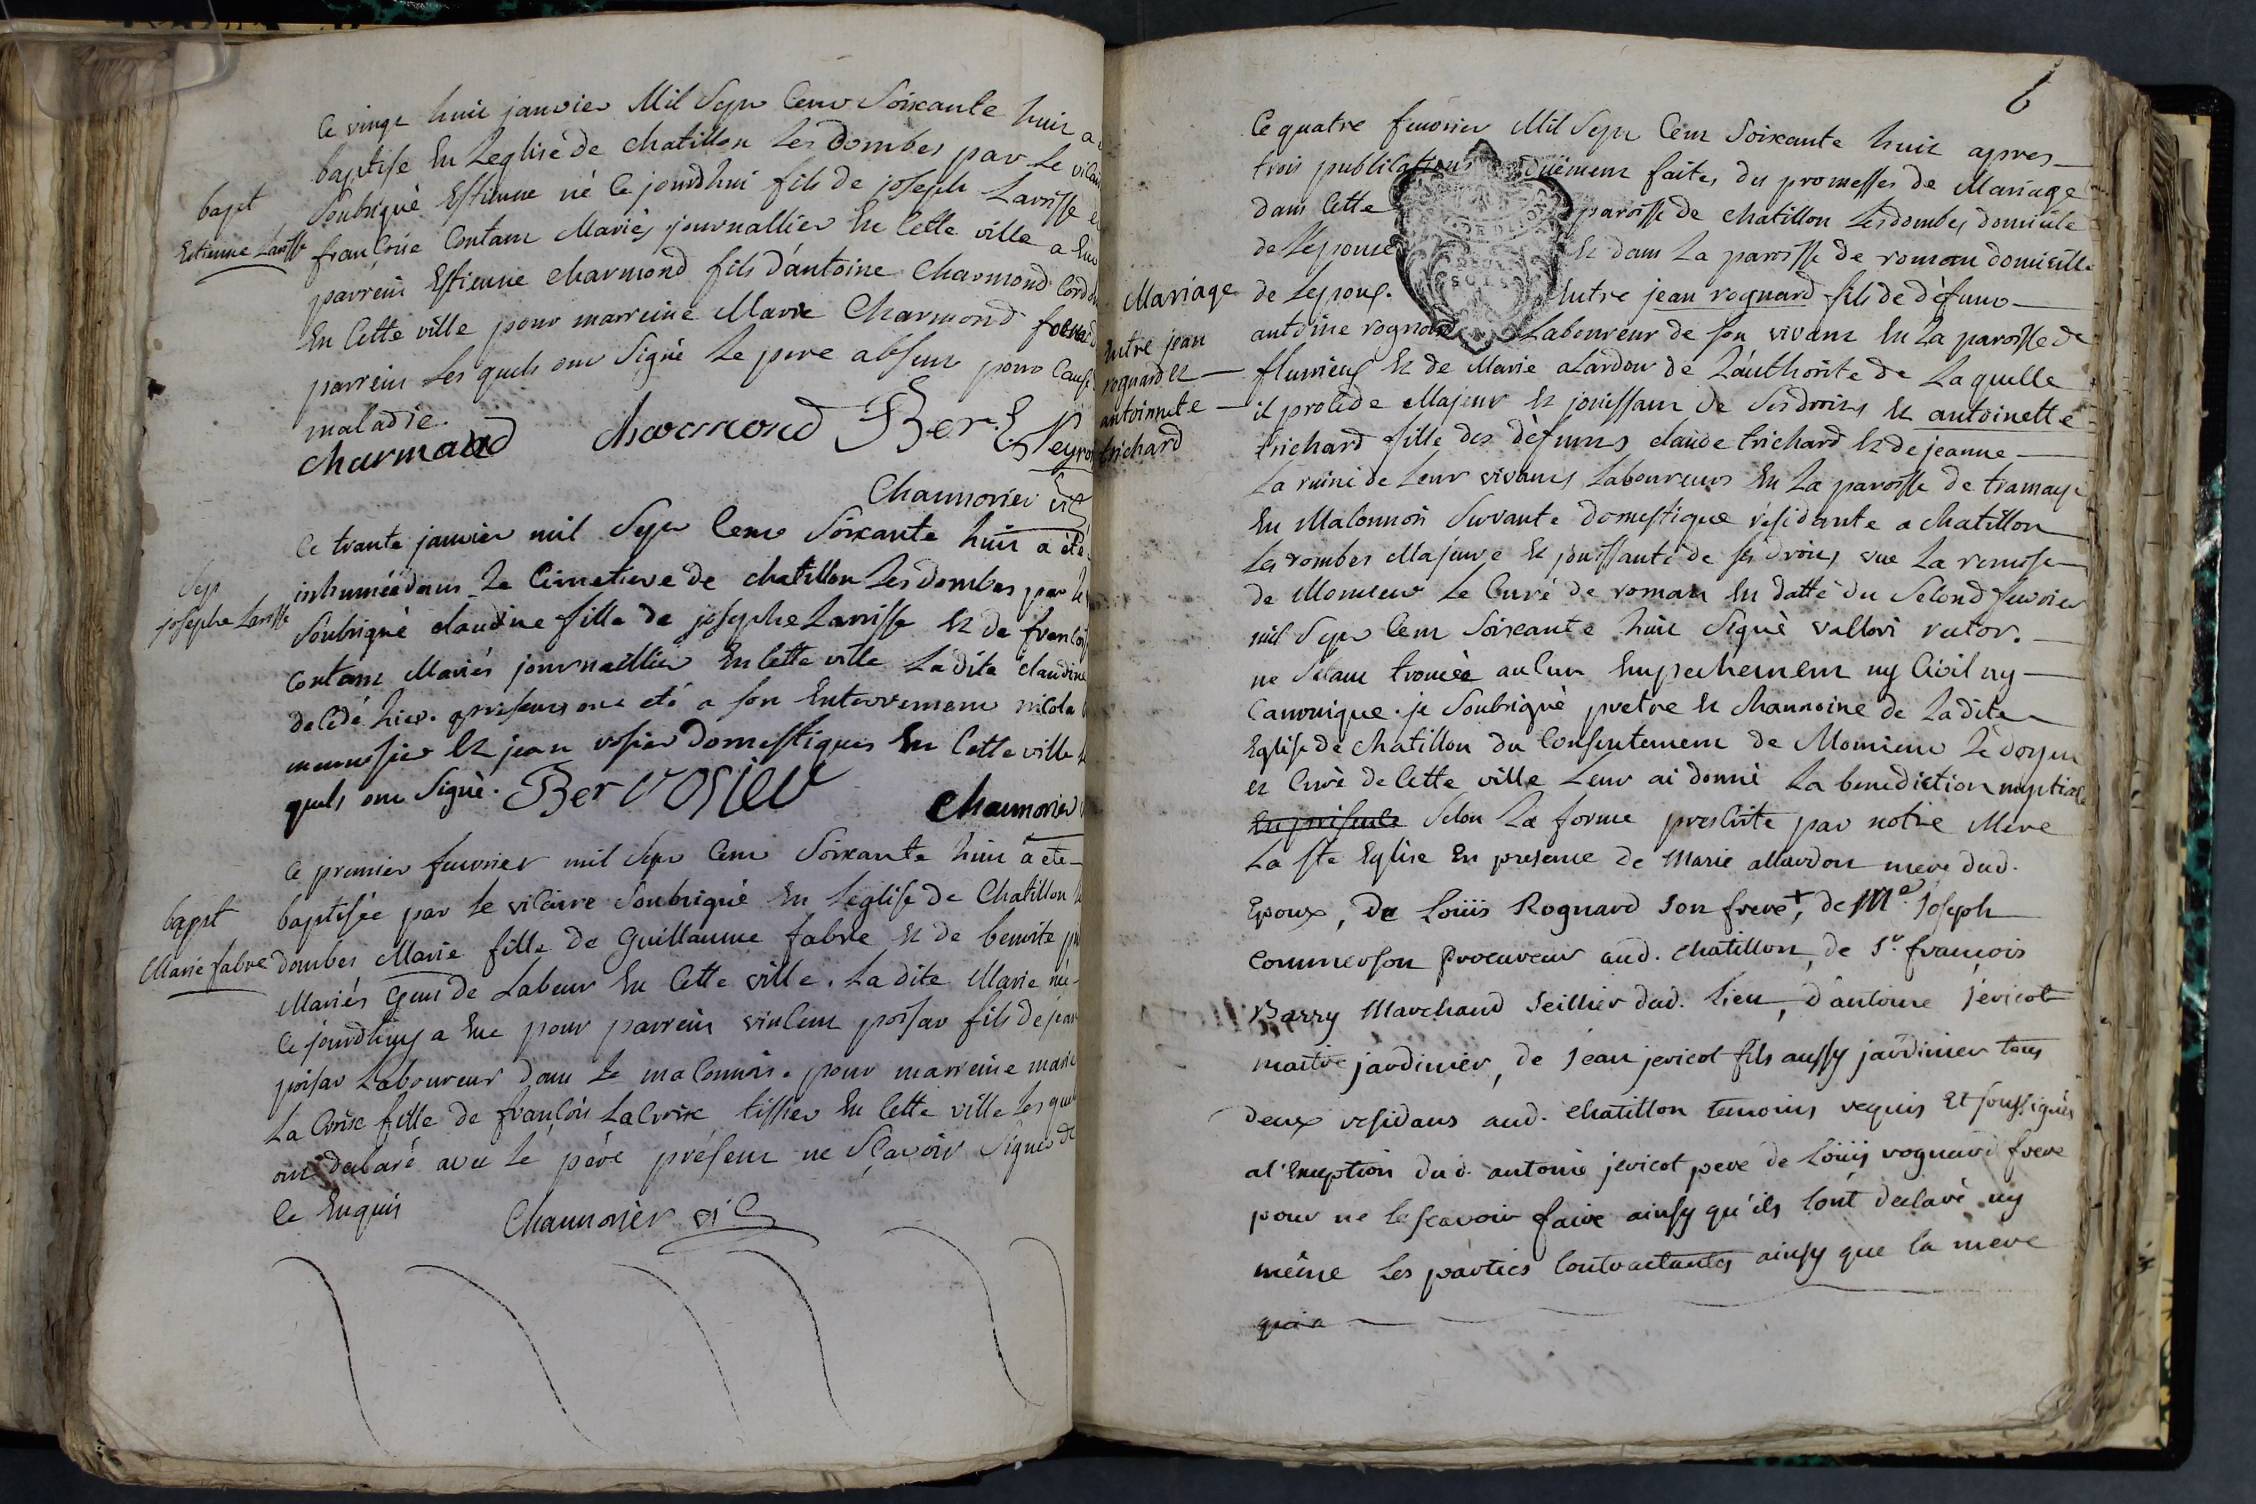 Ce vingt huit janvier Mil Sept Cent Soixante huit a
baptise En Leglise de chatillon Les Dombes par Le vicair
bapt
Estienne Lavisse
Soubsigné Estienne né Ce jourdhui fils de joseph Lavisse et
françoise Contant Mariés journallier En Cette ville a Eut
parrein Estienne charmond fils d'antoine Charmond Cord
En Cette ville pour marreine Marie Charmond
parrein Les quels ont Signé Le pere absent pour Cause
maladie.
charmond charmond Ber
Chaumorier vic
Ce trante janvier mil Sept Cent Soixante huit a été
Sep
josephe Lavisse
inhumée dans Le Cimetiere de chatillon Les dombes par le
Soubsigné claudine fille de josephe Lavisse Et de françois
Contant Mariés journallier En Cette ville La dite claudine
decedé hier. presents ont été a son Enterrement nicola
Et jean vosier Domestiques En Cette ville
quels ont Signé. Ber vosier
Chaumorier
Ce premier fevrier mil Sept Cent Soixante huit a ete
bapt
Marie fabre
baptisée par Le vicaire Soubsigné En Leglise de Chatillon
dombes Marie fille de Guillaume fabre Et de benoite
Mariés Gens de Labeur En Cette ville. La dite Marie née
Ce jourdhuy a Eue pour parrein vincent poisar fils de jean
poisar Laboureur dans Le maConnois. pour marreine marie
La Croix fille de françois LaCroix tissier En Cette ville Les quels
ont declaré avec Le pere présent ne Sçavoir Signer de
Ce Enquis Chaumorier vic
6
Ce quatre fevrier Mil Sept Cent Soixante huit apres
trois publications duëment faites des promesses de Mariage
dans Cette paroisse de chatillon Les dombes domicile
de L'epouse Et dans La paroisse de roman domicille
Mariage
Entre jean
rognard et
antoinette
trichard
de Lepoux. Entre jean rognard fils de défunt
antoine rognard Laboureur de son vivant En La paroisse de
flurieux Et de Marie alardon de L'authorité de Laquelle
il procede Majeur Et jouissant de Ses droits Et antoinette
trichard fille des défunts claude trichard Et de jeanne
La ruine de Leur vivants Laboureurs En La paroisse de tramaye
En Maconnois Servante domestique residante a chatillon
Les dombes Majeure Et jouissante de Ses droits, vue La remise
de Monsieur Le Curé de roman En datte du Second fevrier
mil Sept Cent Soixante huit Signé vallori rector.
ne S'etant trouvée aucun Empechement ny Civil ny
Canonique. je Soubsigné pretre Et Channoine de Ladite
Eglise de chatillon du Consentement de Monsieur Le doyen
et Curé de Cette ville Leur ai donné La benediction nuptiale
En presence Selon La forme prescrite par notre Mere
La Ste Eglise En presence de Marie allardon mere dud.
Epoux, De Loüis Rognard son frere +, de Me. Joseph
Commerson procureur aud. chatillon, de Sr. françois
Barry Marchand Seillier dud. Lieu, d'antoine jericot
maitre jardinier, de Jean jericot fils aussy jardinier tous
deux residans aud. chatillon temoins requis Et soussignés
a l'Exception dud. antoine jericot pere de Loüis rognard frere
pour ne le scavoir faire ainsy qu'ils l'ont declaré ny
même Les parties Contractantes ainsy que la mere